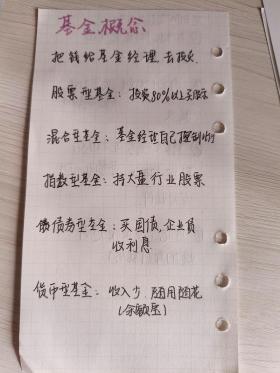 基金概念
把钱给基金经理去投资
股票型基金：投资80%以上股票
混合型基金：基金经理自己控制
指数型基金：持大盘行业股票
债券型基金：买国债、企业债
收利息
货币型基金：收入少，随用随花
（余额宝）